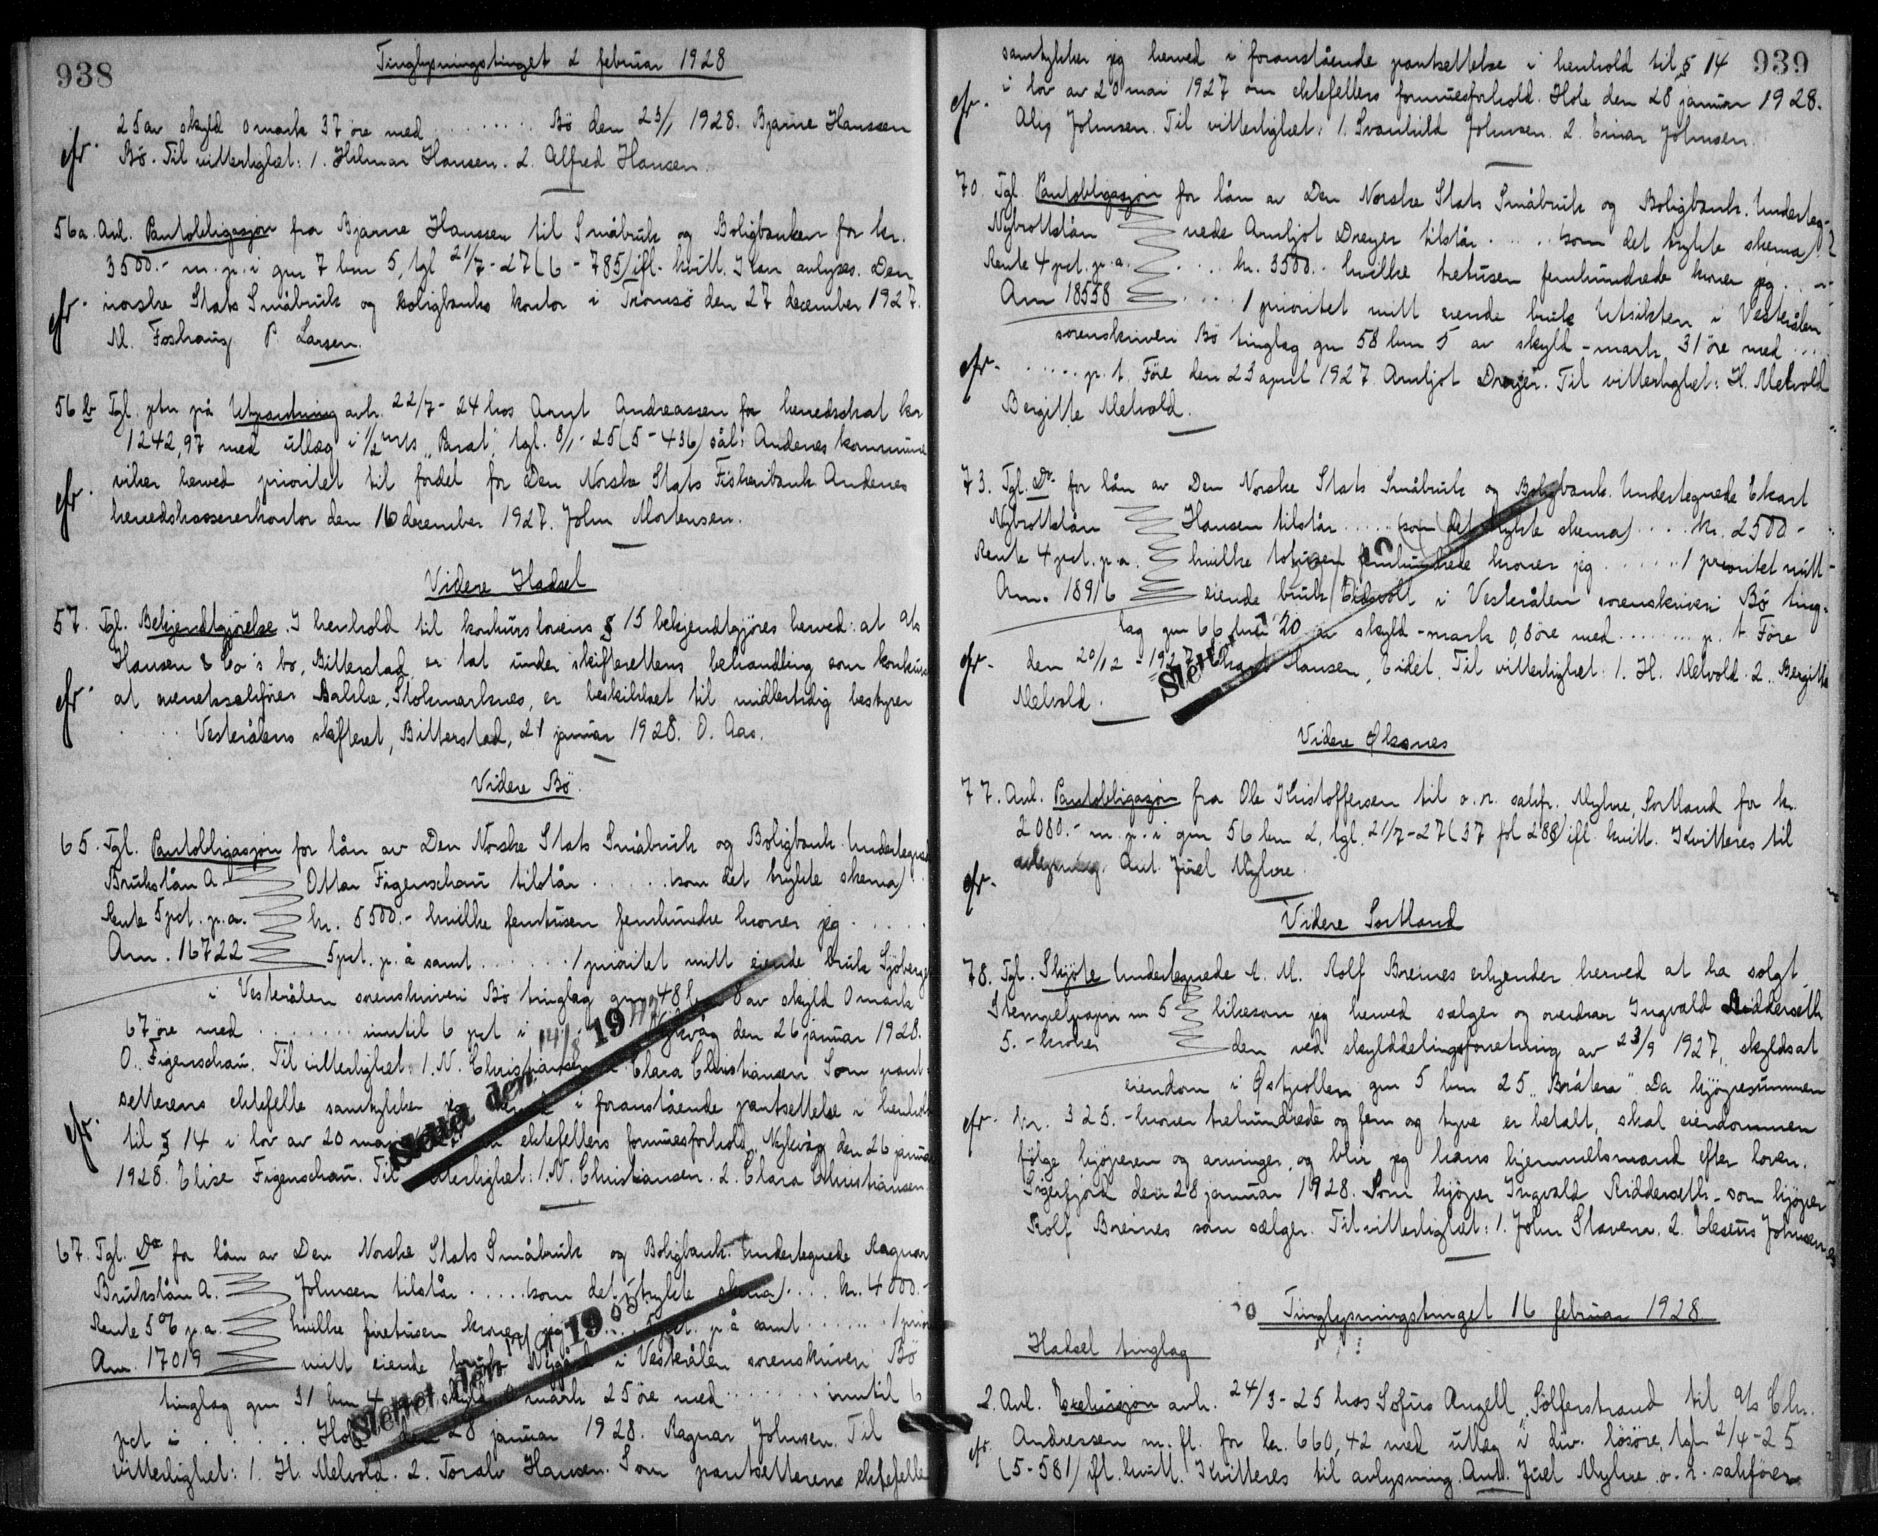 938
Tinglysningstinget 2 februar 1928
25 av skyld 0 mark 37 øre med ........ Bø den 23/1 1928. Bjarne Hanssen
cfr. Bø. Til vitterlighet: 1. Hilmar Hansen. 2. Alfred Hansen.
56a. Avl. Pantobligasjon fra Bjarne Hanssen til Småbruk og Boligbanken for kr.
3500.- m. p. i gnr 7 bnr 5, tgl 21/7-27 (6-785) ifl. kvitt. Kan avlyses. Den
cfr. norske Stats Småbruk og boligbanks kontor i Tromsö den 27 december 1927.
M. Foshaug P. Larsen.
56b Tgl. ptn på Utpantning avh. 22/7-24 hos Arnt Andreassen for herredsskat kr
1242,97 med utlæg i 1/2 m/s "Parat", tgl. 8/1-25 (5-436) sål: Andenes kommune
cfr. viker herved prioritet til fordel for Den Norske Stats Fiskeribank Andenes
herredskassererkontor den 16 december 1927. John Mortensen.
Videre Hadsel
57. Tgl. Bekjendtgjörelse. I henhold til konkurslovens § 15 bekjendtgjöres herved: at A/s
Hansen & Co's bo, Bitterstad er tat under skifterettens behandling som konkurs
cfr. at overretssakförer Bakke, Stokmarknes, er beskikket til midlertidig bestyrer
. . . Vesterålens skifteret, Bitterstad, 21 januar 1928. O. Aas.
Videre Bö.
65. Tgl. Pantobligasjon for lån av Den Norske Stats Småbruk og Boligbank. Undertegnede
Brukslån A. Ottar Figenschau tilstår ...... (som det trykte skema) .
Rente 5 pct. p.a. kr. 5500.- hvilke femtusen femhundre kroner jeg .....
Am. 16722 5 pct. p. å samt ....... 1 prioritet mitt eiende bruk Sjöberget
i Vesterålen sorenskriveri Bö tinglag gnr 48 bnr 8 av skyld 0 mark
67 öre med ........ inntil 6 pct i Nykvåg den 26 januar 1928.
O. Figenschau. Til vitterlighet: 1. N. Christiansen 2. Clara Christiansen Som pant-
setterens ektefelle samtykker jeg herved i foranstående pantsettelse i henhold
cfr. til § 14 i lov av 20 mai ektefellers formuesforhold. Nykvåg den 26 januar
1928. Elise Figenschau. Til vitterlighet: 1. N. Christiansen. 2. Clara Christiansen.
Slettet den 14/8 19
67. Tgl. Do for lån av Den Norske Stats Småbruk og Boligbank. Undertegnede Ragnar
Brukslån A. Johnsen tilstår ..... (som det trykte skema) .... kr. 4000.-
Rente 5% p.a. hvilke firetusen kroner jeg .... 5 pct. p å samt ....... 1 prior
Am. 17019 mitt eiende bruk Nygård i Vesterålen sorenskriveri Bö
tinglag gnr 31 bnr 4 av skyld 0 mark 25 öre med ........ inntil 6
pct i ........ Hole den 28 januar 1928. Ragnar Johnsen. Til
vitterlighet: 1. H. Melvold. 2. Toralv Hansen. Som pantsetterens ektefelle
Slettet den 19
939
samtykker jeg herved i foranstående pantsettelse i henhold til § 14
cfr. i lov av 20 mai 1927 om ektefellers formuesforhold. Hole den 28 januar 1928.
Alis Johnsen. Til vitterlighet: 1. Svanhild Johnsen. 2. Einar Johnsen.
70. Tgl. Pantobligasjon for lån av Den Norske Stats Småbruk og Boligbank. Underteg-
Nybrottslån nede Arnljot Dreyer tilstår ..... (som det trykte skema)
Rente 4 pct. p.a. .... kr. 3500.- hvilke tretusen femhundrede kroner jeg ...
Am 18558 .... 1 prioritet mitt eiende bruk Utsikten i Vesterålen
sorenskriveri Bö tinglag gnr 58 bnr 5 av skyld - mark 31 öre med ....
cfr. ..... p. t. Före den 23 april 1927. Arnljot Dreyer. Til vitterlighet: H. Melvold
Bergitte Melvold.
73. Tgl. Do for lån av Den Norske Stats Småbruk og Boligbank. Undertegnede Ekart
Nybrottslån Hansen tilstår ..... (som det trykte skema) .... kr. 2500.-
Rente 4 pct. p.a. hvilke totusen femhundrede kroner jeg ...... 1 prioritet mitt
Am. 18916 eiende bruk Eidsvoll i Vesterålen sorenskriveri Bö ting-
lag gnr 66 bnr 20 av skyld - mark 0,8 öre med ........ p. t. Före
cfr. den 20/12-1927 Ekart Hansen, Eidet. Til vitterlighet: 1. H. Melvold. 2. Bergitte
Melvold.
Slettet
Videre Öksnes
77. Avl. Pantobligasjon fra Ole Kristoffersen til o.r. sakfr. Myhre, Sortland for kr.
2080.- m. p. i gnr 56 bnr 2, tgl. 21/7-27 (37 fol 288) ifl kvitt. Kvitteres til
cfr. avlysning. Ant. Juel Myhre.
Videre Sortland
78. Tgl. Skjöte Undertegnede A. M. Rolf Breines erkjender herved at ha solgt
Stempelpapir nr 5 likesom jeg herved sælger og overdrar Ingvald Ridderseth
5.- kroner den ved skylddelingsforretning av 23/9 1927, skyldsat
eiendom i Östpollen gnr 5 bnr 25 "Bråten" Da kjöpesummen
cfr. kr. 325.- kroner trehundrede og fem og tyve er betalt, skal eiendommen
fölge kjöperen og arvinger, og blir jeg hans hjemmelsmand efter loven.
Sigerfjord den 28 januar 1928. Som kjöper Ingvald Ridderseth - som kjöper
Rolf Breines som sælger. Til vitterlighet: 1. John Stavern. 2. Eleseus Johnsen
Tinglysningstinget 16 februar 1928
Hadsel tinglag
2. Avl. Exekusjon avh. 24/3-25 hos Sofus Angell, Sölferstrand til A/s Chr.
cfr. Andressen m. fl. for kr. 660,42 med utlæg i div. lösöre, tgl 2/4-25
(5-581) ifl. kvitt. Kvitteres til avlysning. Ant. Juel Myhre o. r. sakförer